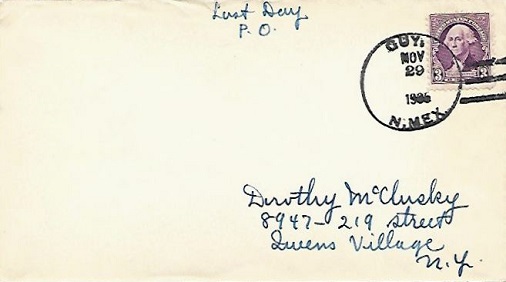 Last Day
P.O.
GUY,
NOV
29
1936
N.MEX.
3 3
Dorothy McClusky
8947-219 street
Queens Village
N.Y.